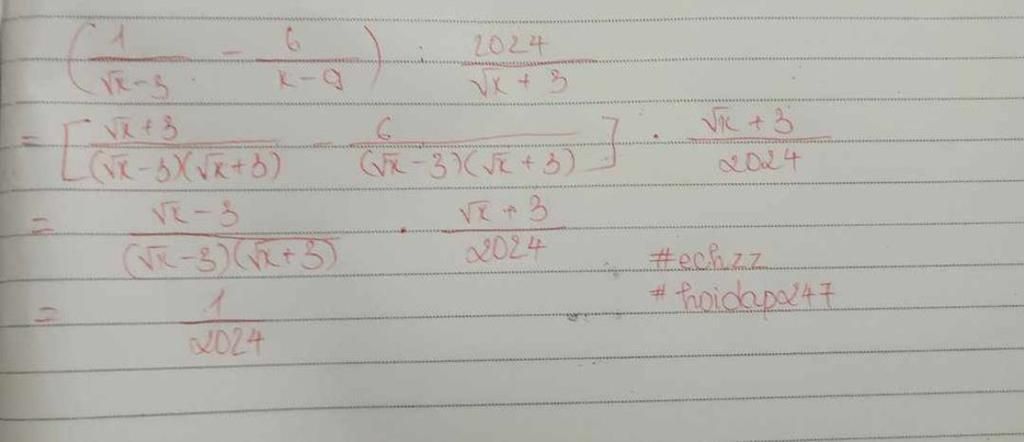 (1/(√x-3) - 6/(x-9)) : 2024/(√x+3)
= [(√x+3)/((√x-3)(√x+3)) - 6/((√x-3)(√x+3))] . (√x+3)/2024
= (√x-3)/((√x-3)(√x+3)) . (√x+3)/2024
#echzz
= 1/2024
#hoidap247